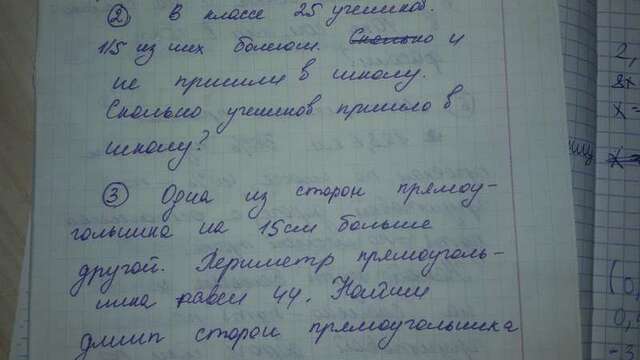 ② В классе 25 учеников.
1/5 из них болеют. Сколько и
не пришли в школу.
Сколько учеников пришло в
школу?
③ Одна из сторон прямоу-
гольника на 15см больше
другой. Периметр прямоуголь-
ника равен 44. Найдии
длинн сторон прямоугольника
2,
x =
(0,
0,
-3